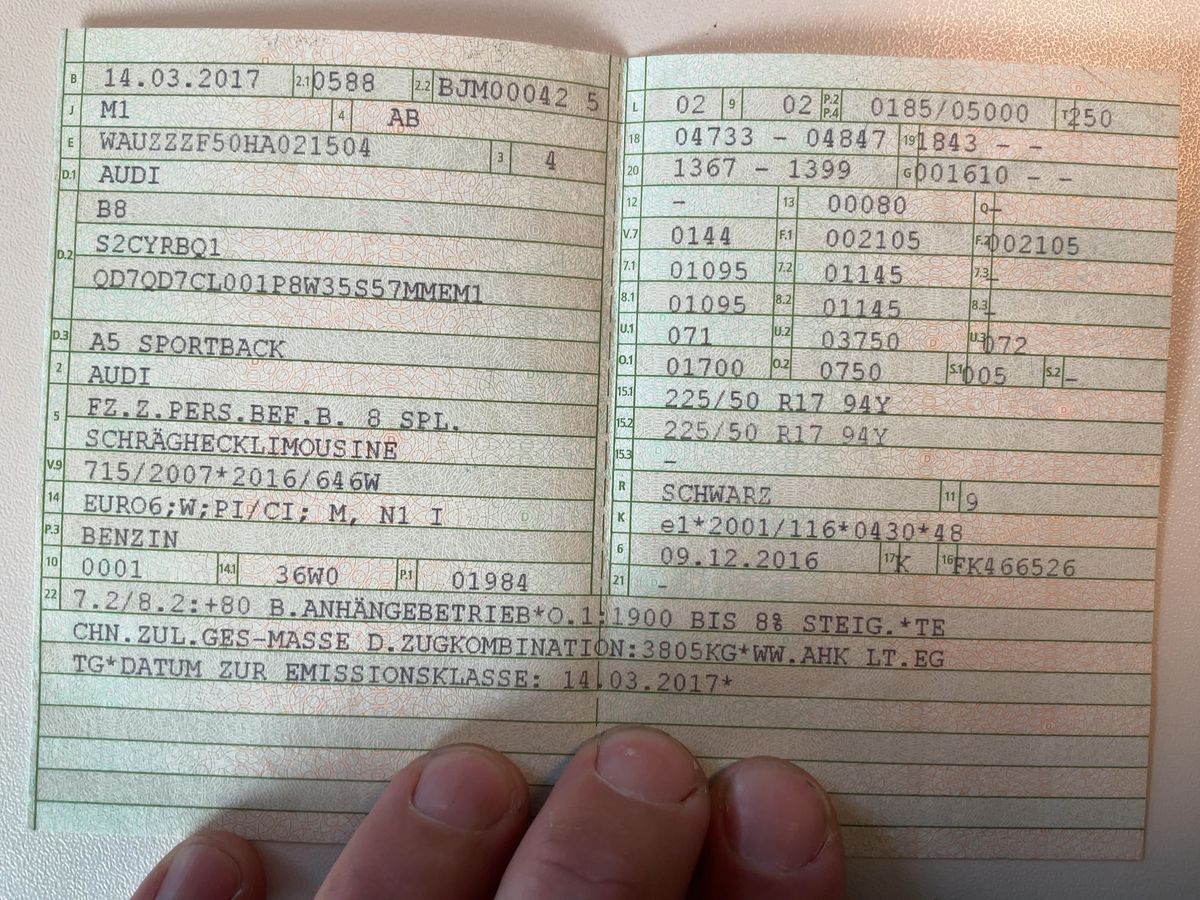 B 14.03.2017 2.1 0588 2.2 BJM00042 5
J M1 4 AB
E WAUZZZF50HA021504 3 4
D.1 AUDI
B8
D.2 S2CYRBQ1
QD7QD7CL001P8W35S57MMEM1
D.3 A5 SPORTBACK
2 AUDI
5 FZ.Z.PERS.BEF.B. 8 SPL.
SCHRÄGHECKLIMOUSINE
V.9 715/2007*2016/646W
14 EURO6;W;PI/CI; M, N1 I
P.3 BENZIN
10 0001 14.1 36W0 P.1 01984
L 02 9 02 P.2 P.4 0185/05000 T 250
18 04733 - 04847 19 1843 - -
20 1367 - 1399 G 001610 - -
12 - 13 00080 Q -
V.7 0144 F.1 002105 F.2 002105
7.1 01095 7.2 01145 7.3 -
8.1 01095 8.2 01145 8.3 -
U.1 071 U.2 03750 U.3 072
O.1 01700 O.2 0750 S.1 005 S.2 -
15.1 225/50 R17 94Y
15.2 225/50 R17 94Y
15.3 -
R SCHWARZ 11 9
K e1*2001/116*0430*48
6 09.12.2016 17 K 16 FK466526
21 -
22 7.2/8.2:+80 B.ANHÄNGEBETRIEB*O.1:1900 BIS 8% STEIG.*TE
CHN.ZUL.GES-MASSE D.ZUGKOMBINATION:3805KG*WW.AHK LT.EG
TG*DATUM ZUR EMISSIONSKLASSE: 14.03.2017*